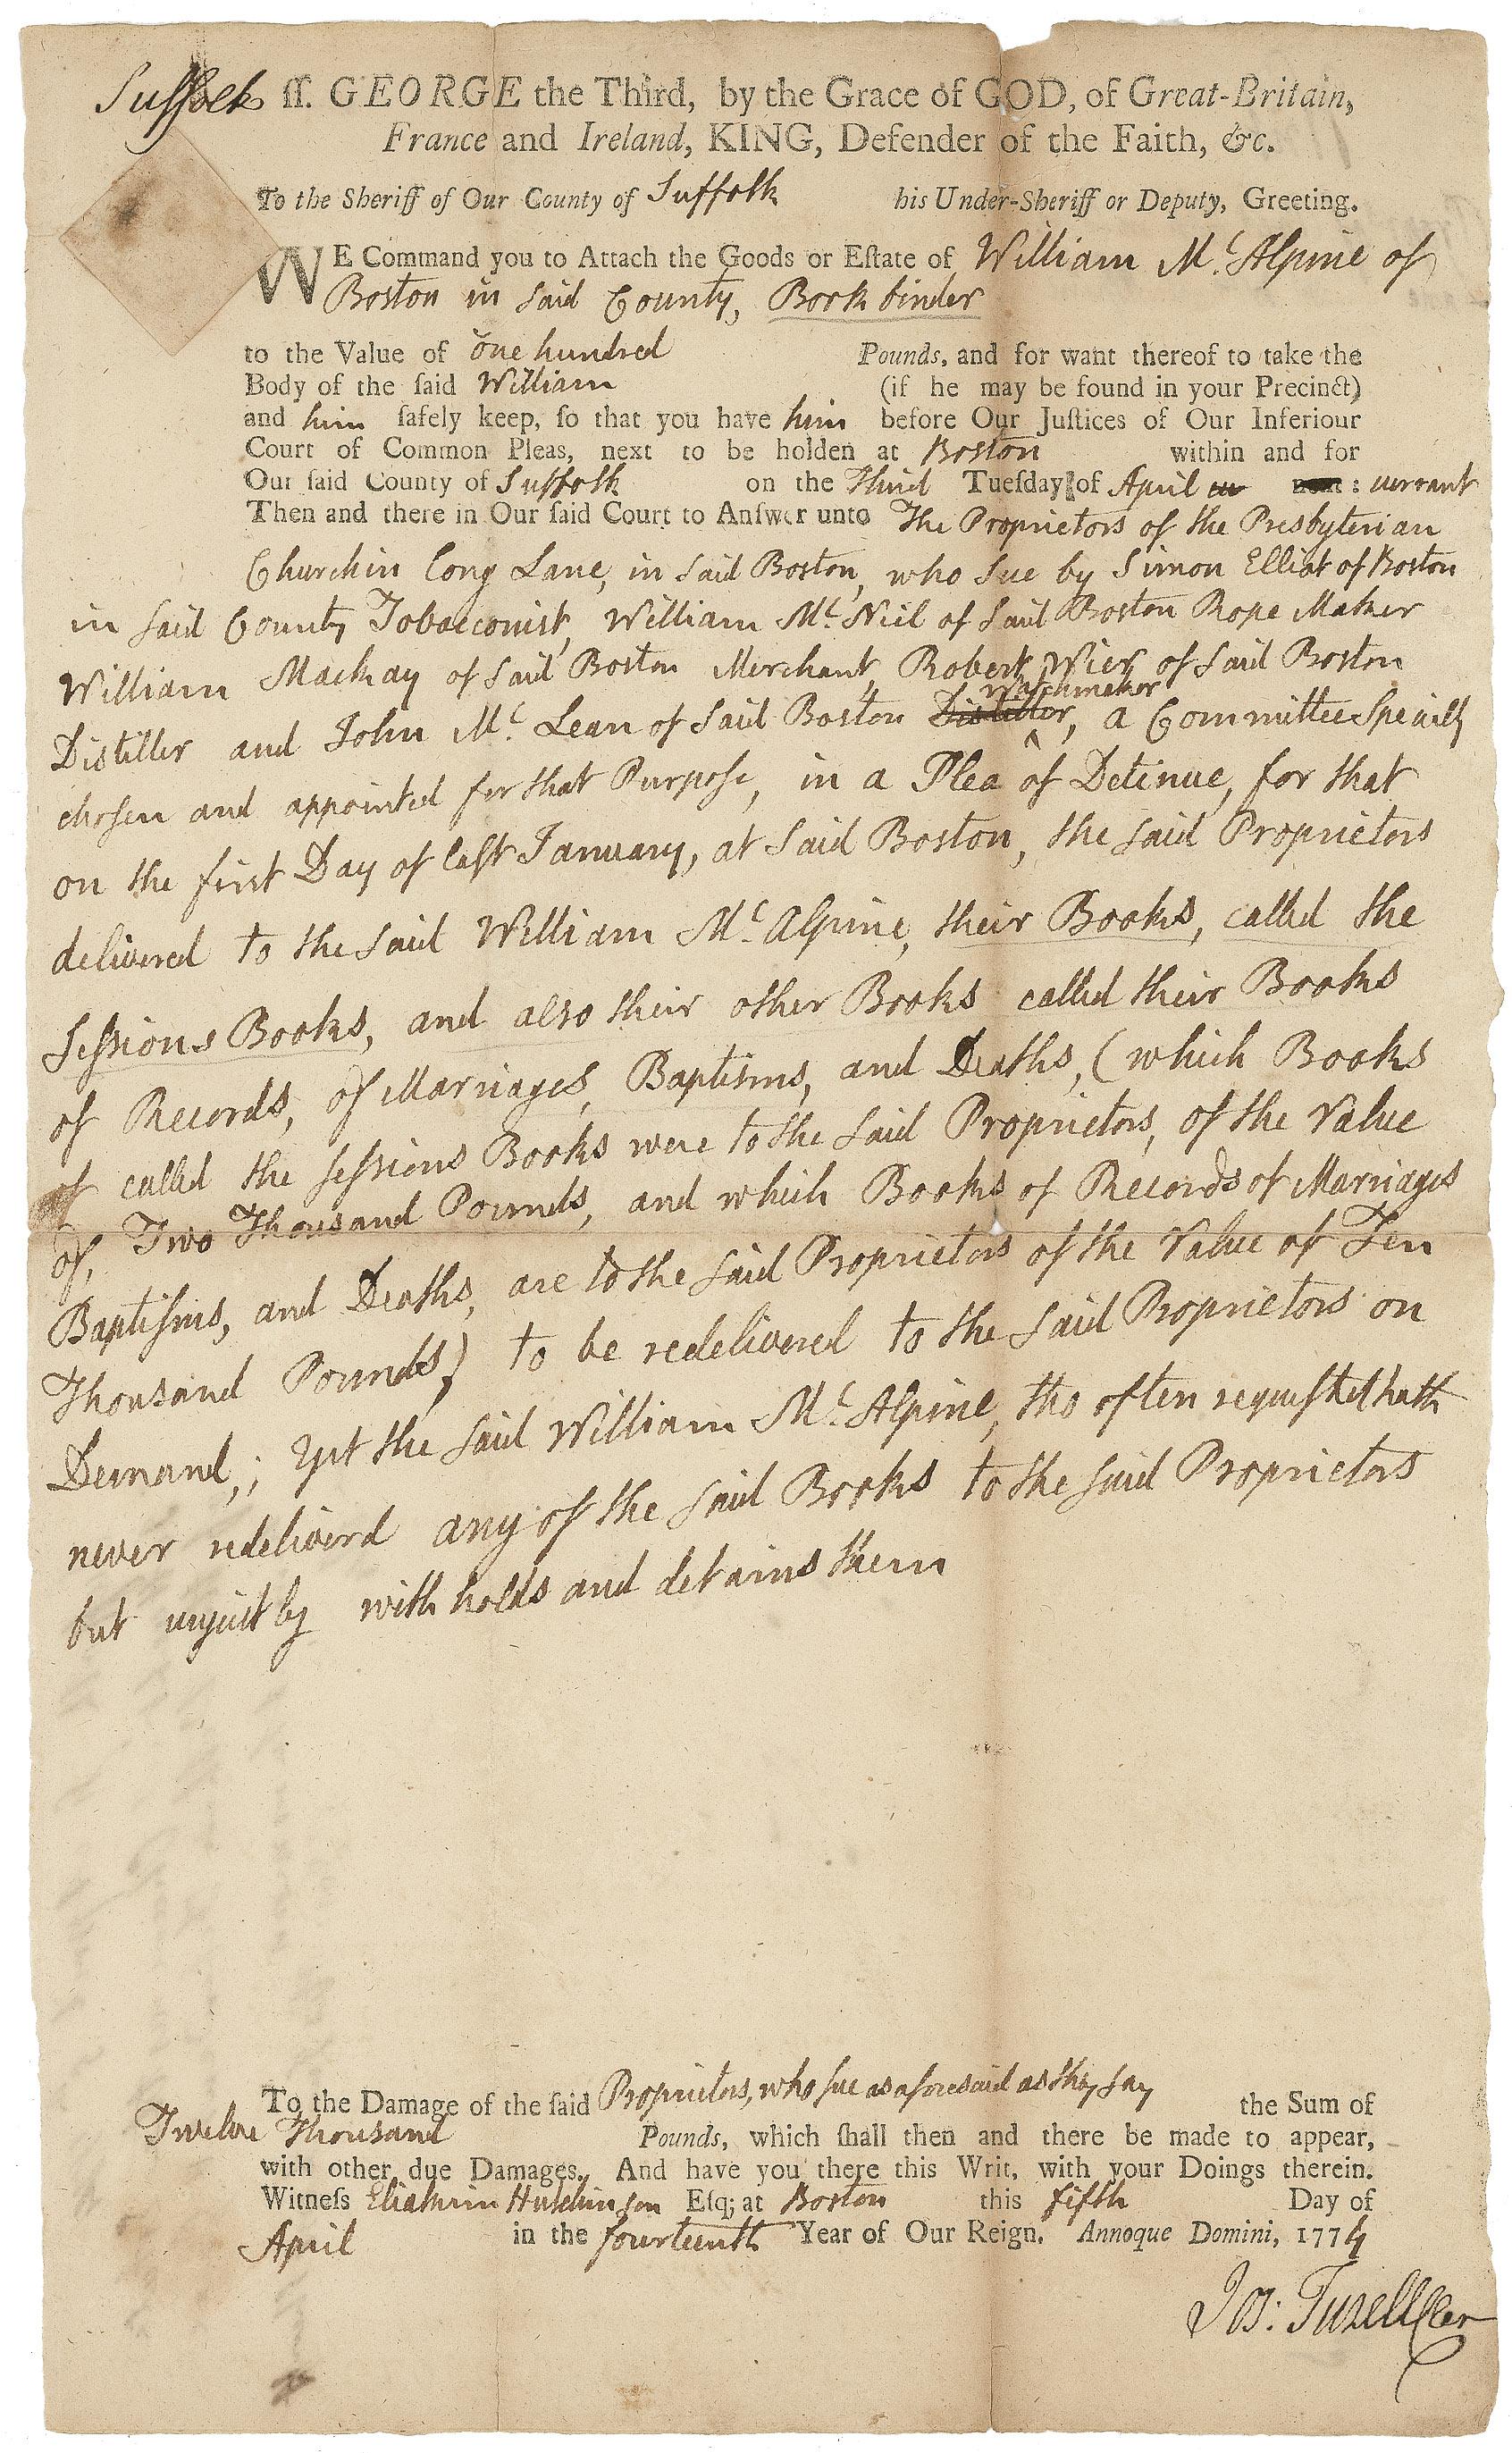 Suffolk ſſ. GEORGE the Third, by the Grace of GOD, of Great-Britain,
France and Ireland, KING, Defender of the Faith, &c.
To the Sheriff of Our County of Suffolk his Under-Sheriff or Deputy, Greeting.
WE Command you to Attach the Goods or Eſtate of William Mc. Alpine of
Boston in said County, Bookbinder
to the Value of one hundred Pounds, and for want thereof to take the
Body of the ſaid William (if he may be found in your Precinct)
and him ſafely keep, ſo that you have him before Our Juſtices of Our Inferiour
Court of Common Pleas, next to be holden at Boston within and for
Our ſaid County of Suffolk on the Third Tueſday of April currant
Then and there in Our ſaid Court to Anſwer unto The Proprietors of the Presbyterian
Church in Long Lane, in said Boston, who sue by Simon Elliot of Boston
in said County Tobacconist, William Mc. Neil of said Boston Rope Maker
William Mackay of said Boston Merchant, Robert Wier of said Boston
Watchmaker
Distiller and John Mc. Lean of said Boston Distiller, a Committee Specially
chosen and appointed for that Purpose, in a Plea of Detinue, for that
on the first Day of last January, at said Boston, the said Proprietors
delivered to the said William Mc. Alpine, their Books, called the
Sessions Books, and also their other Books called their Books
of Records, of Marriages, Baptisms, and Deaths, (which Books
of called the sessions Books were to the said Proprietors, of the Value
of, Two Thousand Pounds, and which Books of Records of Marriages
Baptisms, and Deaths, are to the said Proprietors of the Value of Ten
Thousand Pounds) to be redelivered to the said Proprietors on
Demand,; yet the said William Mc. Alpine, tho often requested hath
never redeliverd any of the said Books to the said Proprietors
but unjustly with holds and detains them
To the Damage of the ſaid Proprietors, who sue as aforesaid as they say the Sum of
Twelve Thousand Pounds, which ſhall then and there be made to appear,
with other due Damages. And have you there this Writ, with your Doings therein.
Witneſs Eliakim Hutchinson Eſq; at Boston this fifth Day of
April in the fourteenth Year of Our Reign. Annoque Domini, 1774
Jos: Turell Cler